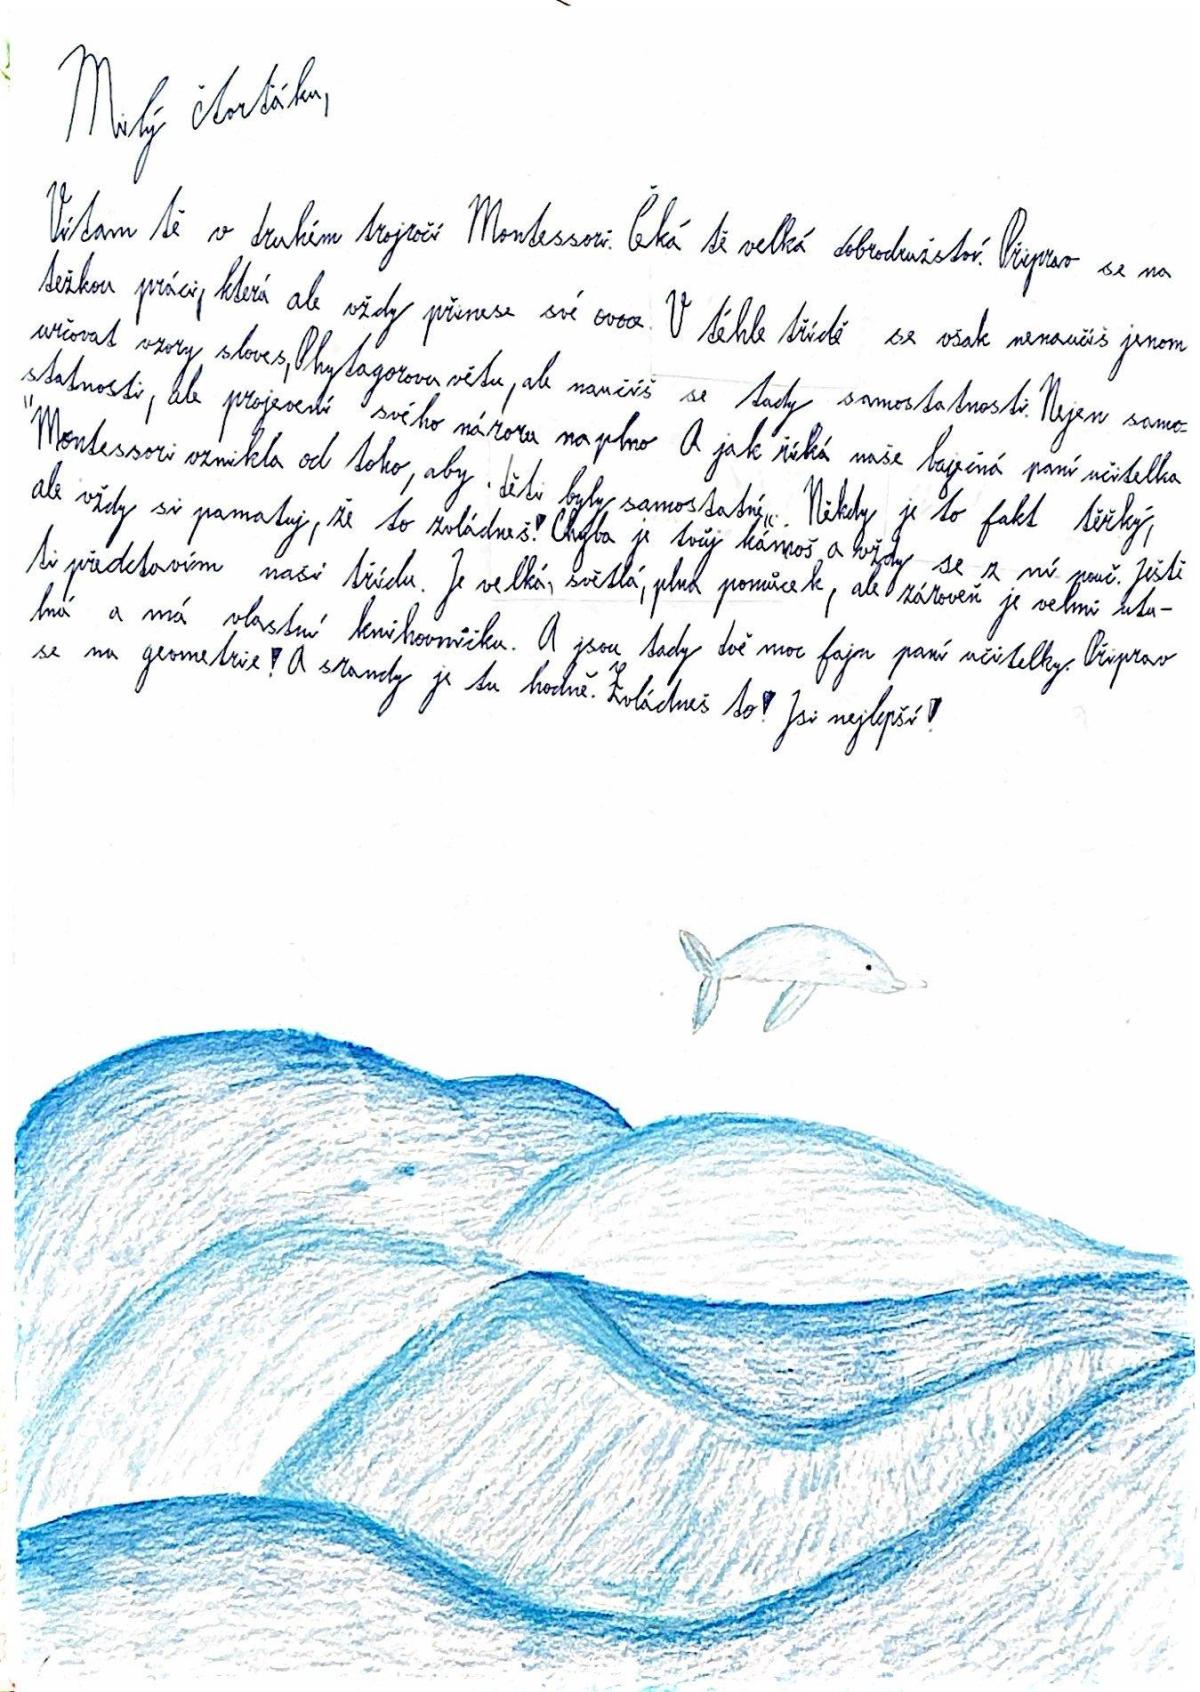 Milý čtvrťáku,
Vítam tě v druhém trojročí Montessori. Čeká tě velká dobrodružství. Připrav se na
težkou práci, která ale vždy přinese své ovoce. V téhle třídě se však nenaučíš jenom
určovat vzory sloves, Phytagorovu větu, ale naučíš se tady samostatnosti. Nejen samo=
statnosti, ale projevení svého názoru naplno A jak říká naše báječná paní učitelka
"Montessori vznikla od toho, aby děti byly samostatné„. Někdy je to fakt těžký,
ale vždy si pamatuj, že to zvládneš! Chyba je tvůj kámoš a vždy se z ní pouč. Ještě
ti představím naši třídu. Je velká, světlá, plna pomůcek, ale zároveň je velmi utu-
lná a má vlastní knihovničku. A jsou tady dvě moc fajn paní učitelky. Připrav
se na geometrie! A srandy je tu hodně. Zvládneš to! Jsi nejlepší!